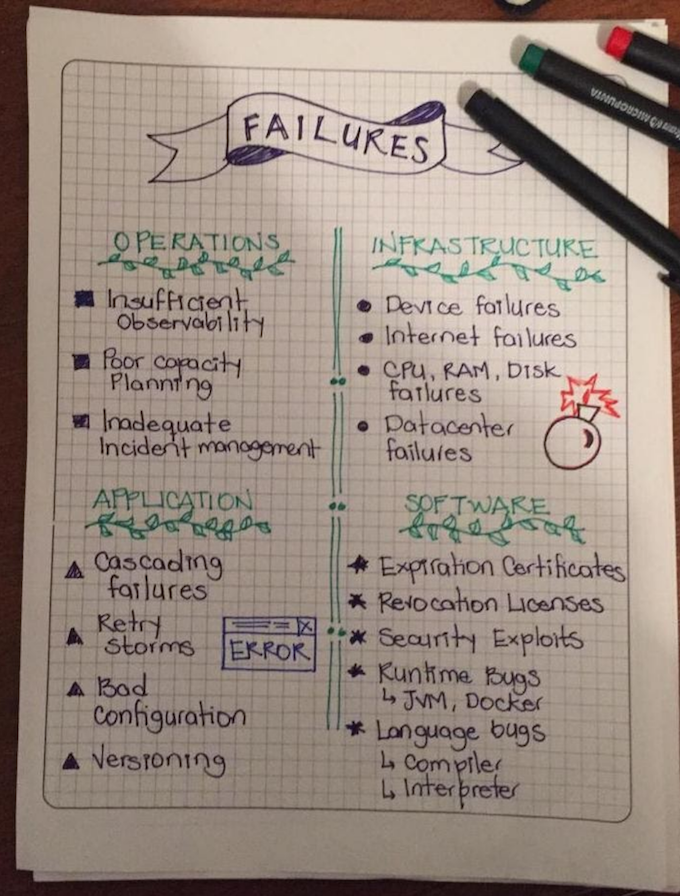 FAILURES
OPERATIONS
Insufficient
Observability
Poor capacity
Planning
Inadequate
Incident management
INFRASTRUCTURE
Device failures
Internet failures
CPU, RAM, Disk
failures
Datacenter
failures
APPLICATION
Cascading
failures
Retry
Storms
Bad
configuration
Versioning
ERROR
SOFTWARE
Expiration Certificates
Revocation Licenses
Security Exploits
Runtime Bugs
↳ JVM, Docker
Language bugs
↳ Compiler
↳ Interpreter
MICROPUNTA